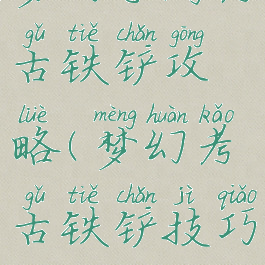 gǔ tiě chǎn gōng
古铁铲攻
lüè mèng huàn kǎo
略(梦幻考
gǔ tiě chǎn jì qiǎo
古铁铲技巧